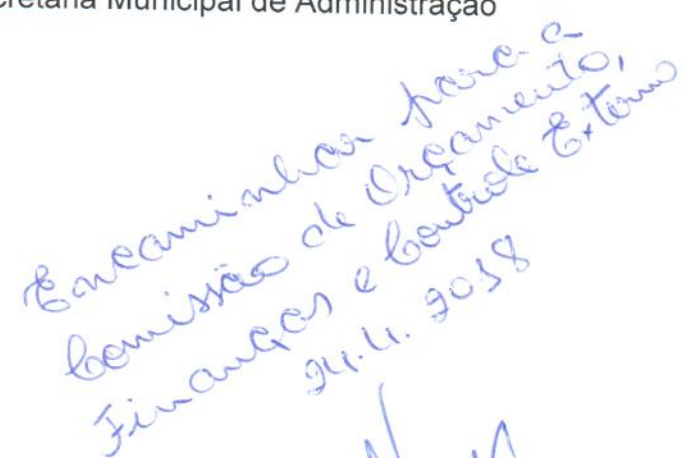 cretaria Municipal de Administração
Encaminhar para a
Comissão de Orçamento,
Finanças e Controle Externo
2018